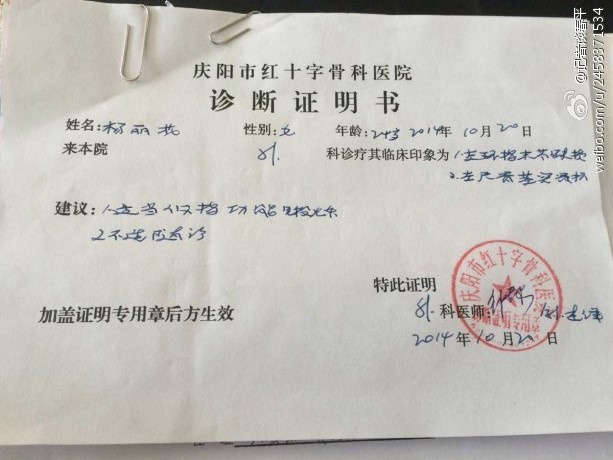 庆阳市红十字骨科医院
诊断证明书
姓名:杨丽 性别:女 年龄:24岁 2014年10月20日
来本院 外 科诊疗其临床印象为 1.左环指末节缺损
建议: 1.适当 指功能锻炼
2.不适随诊
特此证明
加盖证明专用章后方生效
外科医师:
2014年10月20日
庆阳市红十字骨科医院
诊断证明专用章
@记者谈春平
weibo.com/u/2458871534